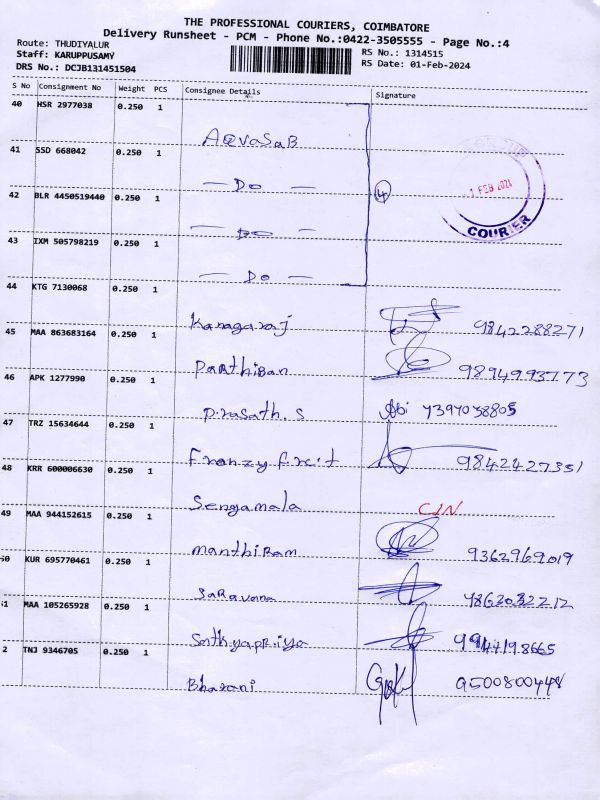 THE PROFESSIONAL COURIERS, COIMBATORE
Delivery Runsheet - PCM - Phone No.:0422-3505555 - Page No.:4
Route: THUDIYALUR
Staff: KARUPPUSAMY
DRS No.: DCJB131451504
RS No.: 1314515
RS Date: 01-Feb-2024
S No Consignment No Weight PCS Consignee Details Signature
40 HSR 2977038 0.250 1
AQVASAB
41 SSD 668042 0.250 1
— Do —
42 BLR 4450519440 0.250 1
4
1 FEB 2024
COURIER
— Do —
43 IXM 505798219 0.250 1
— Do —
44 KTG 7130068 0.250 1
Kanagaraj 9842288271
45 MAA 863683164 0.250 1
Parthiban 9894993773
46 APK 1277990 0.250 1
Prasath. S Abi 7397038805
47 TRZ 15634644 0.250 1
Franzy frcit 9842427351
48 KRR 600006630 0.250 1
Sengamala
49 MAA 944152615 0.250 1
manthiram 9362969019
50 KUR 695770461 0.250 1
Saravana
51 MAA 105265928 0.250 1
Sathyapriya 9944198665
2 TNJ 9346705 0.250 1
Bharani 9500800448